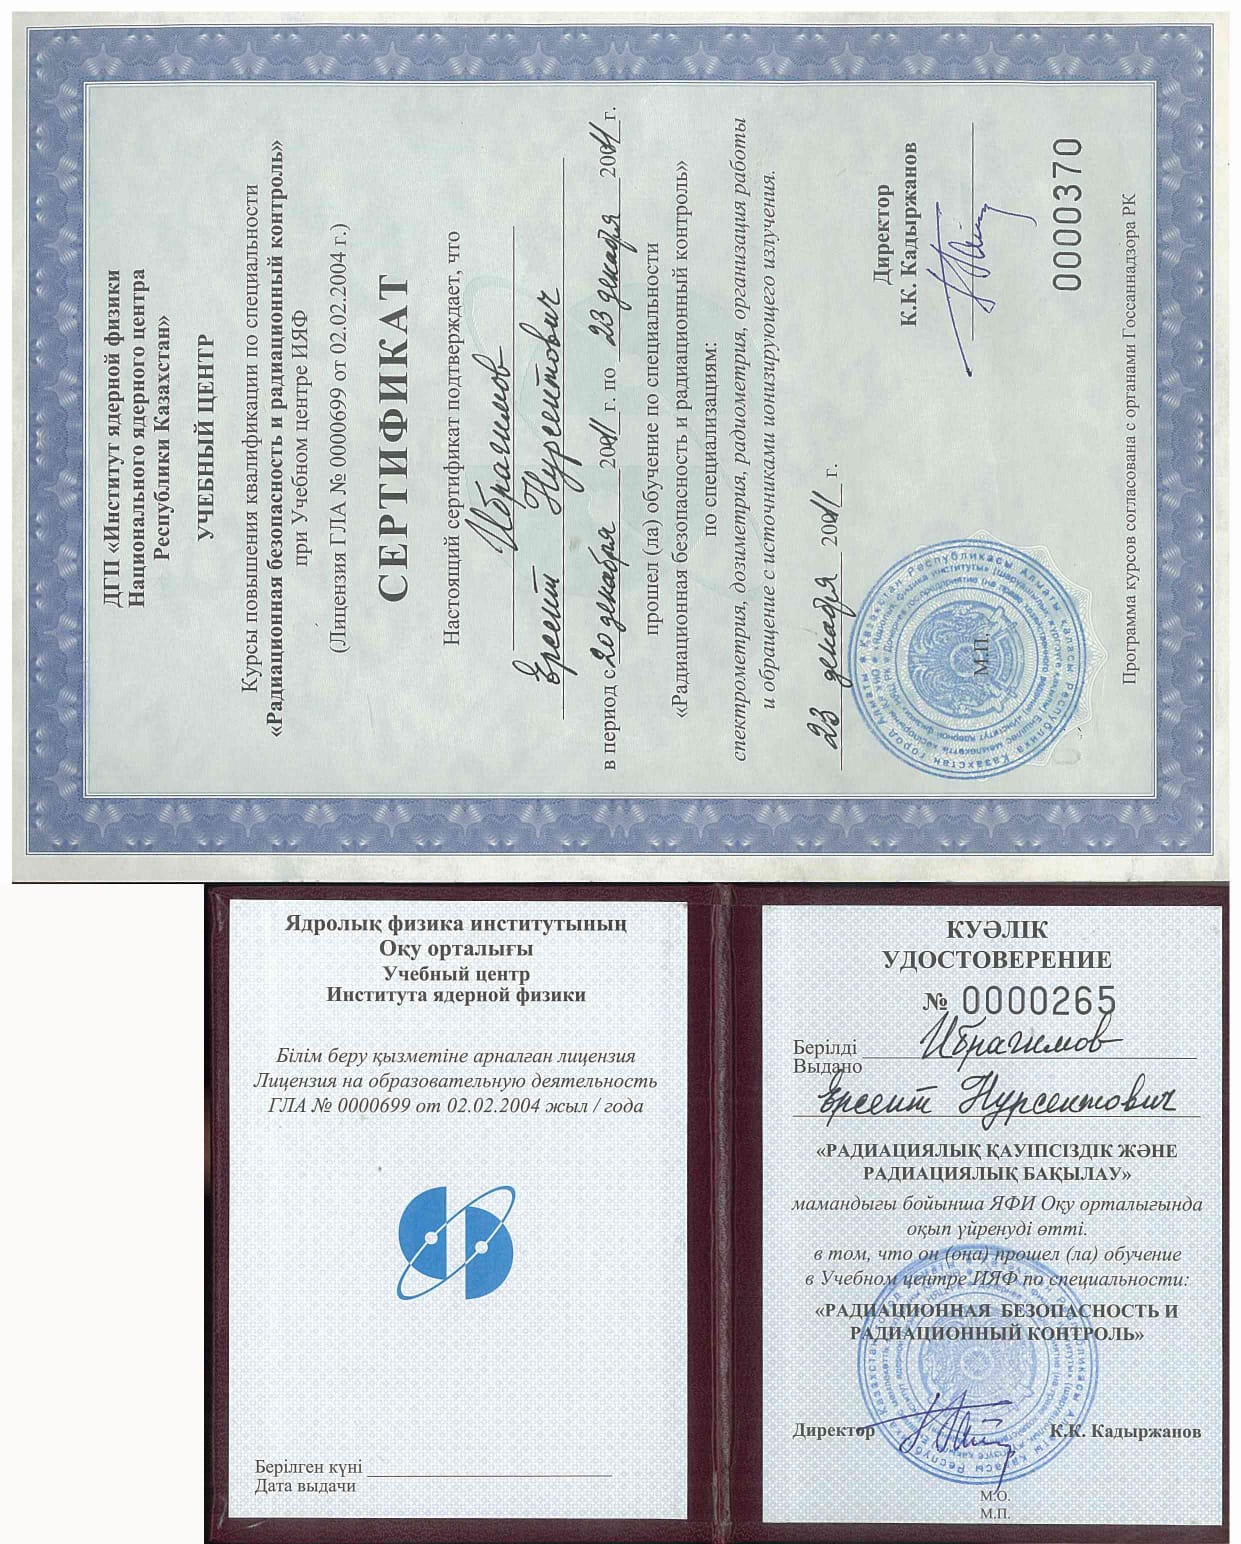 ДГП «Институт ядерной физики
Национального ядерного центра
Республики Казахстан»
УЧЕБНЫЙ ЦЕНТР
Курсы повышения квалификации по специальности
«Радиационная безопасность и радиационный контроль»
при Учебном центре ИЯФ
(Лицензия ГЛА № 0000699 от 02.02.2004 г.)
СЕРТИФИКАТ
Настоящий сертификат подтверждает, что
Ибрагимов
Ерсеит Нурсеитович
в период с 20 декабря 2011 г. по 23 декабря 2011 г.
прошел (ла) обучение по специальности
«Радиационная безопасность и радиационный контроль»
по специализациям:
спектрометрия, дозиметрия, радиометрия, организация работы
и обращение с источниками ионизирующего излучения.
Директор
К.К. Кадыржанов
23 декабря 2011 г.
М.П.
0000370
Программа курсов согласована с органами Госсаннадзора РК
Ядролық физика институтының
Оқу орталығы
Учебный центр
Института ядерной физики
Білім беру қызметіне арналған лицензия
Лицензия на образовательную деятельность
ГЛА № 0000699 от 02.02.2004 жыл / года
Берілген күні
Дата выдачи
КУӘЛІК
УДОСТОВЕРЕНИЕ
№ 0000265
Берілді Ибрагимов
Выдано
Ерсеит Нурсеитович
«РАДИАЦИЯЛЫҚ ҚАУІПСІЗДІК ЖӘНЕ
РАДИАЦИЯЛЫҚ БАҚЫЛАУ»
мамандығы бойынша ЯФИ Оқу орталығында
оқып үйренуді өтті.
в том, что он (она) прошел (ла) обучение
в Учебном центре ИЯФ по специальности:
«РАДИАЦИОННАЯ БЕЗОПАСНОСТЬ И
РАДИАЦИОННЫЙ КОНТРОЛЬ»
Директор К.К. Кадыржанов
М.О.
М.П.